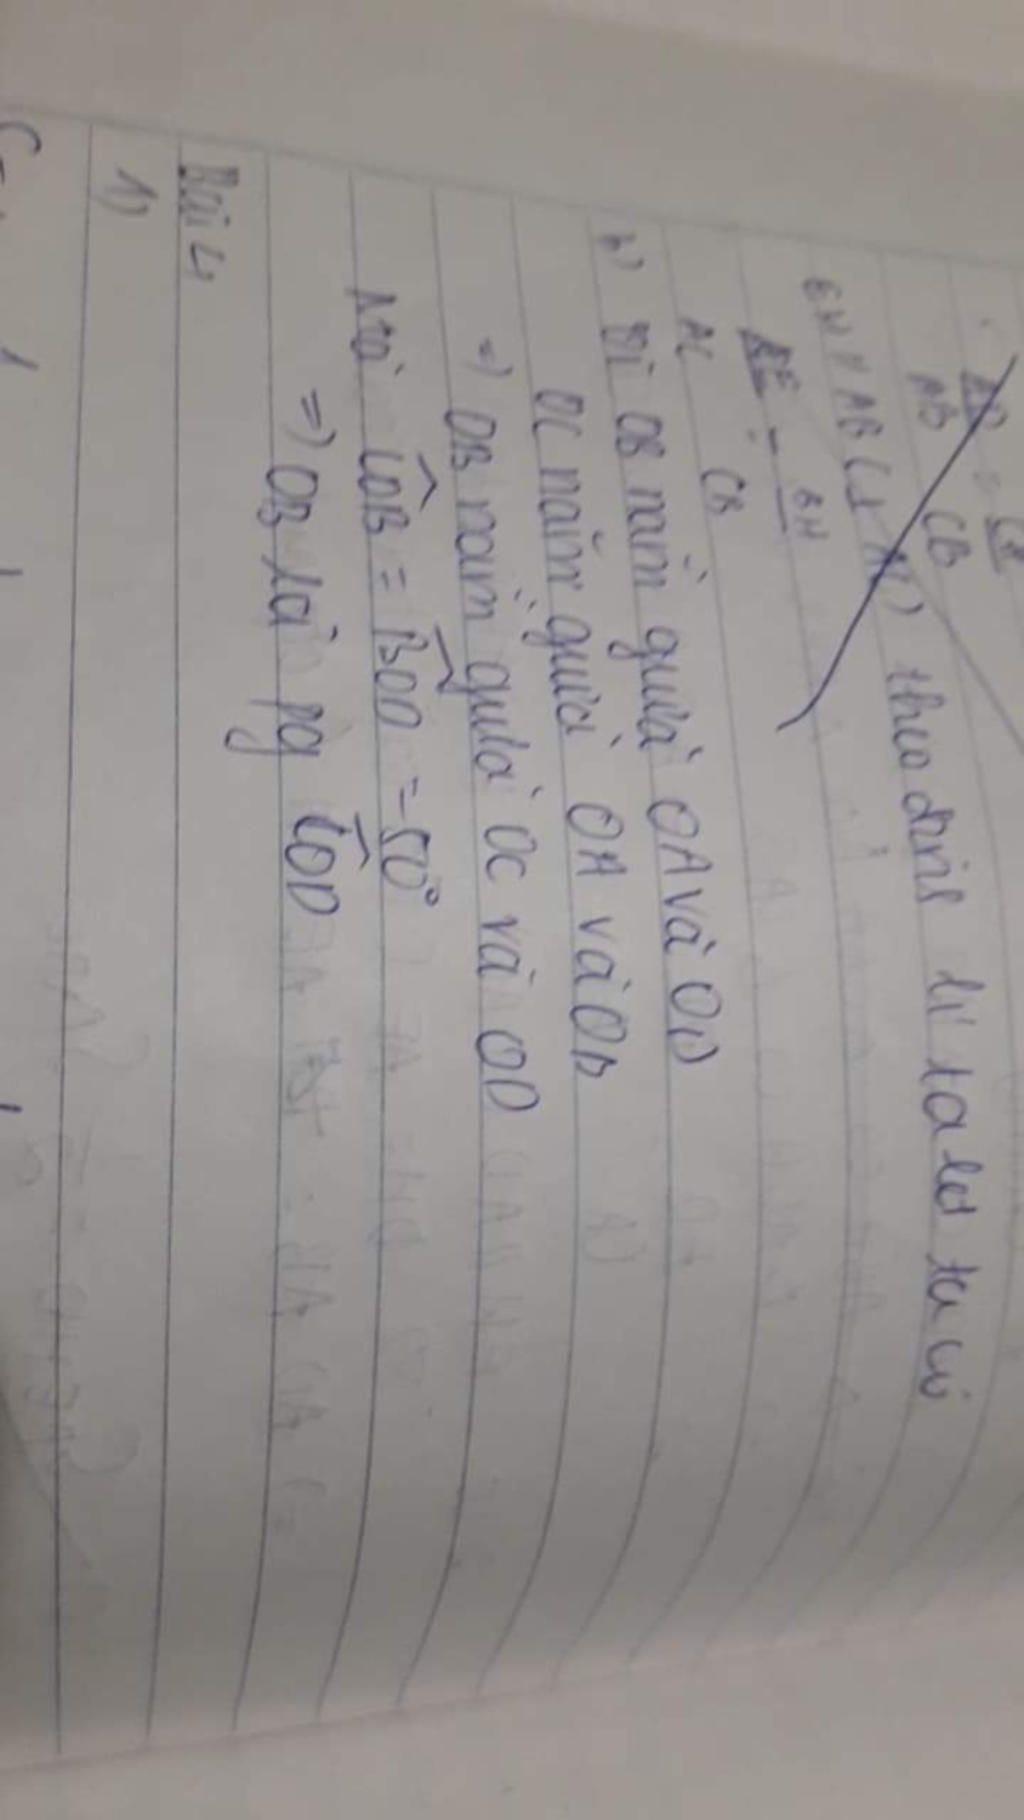 AB CB
EH // AB (⊥ AC) theo định lí ta let ta có
AC CB
b) Vì OB nằm giữa OA và OD
OC nằm giữa OA và OB
=) OB nằm giữa OC và OD
Mà COB = BOD = 50°
=) OB là pg COD
Bài 4
1)